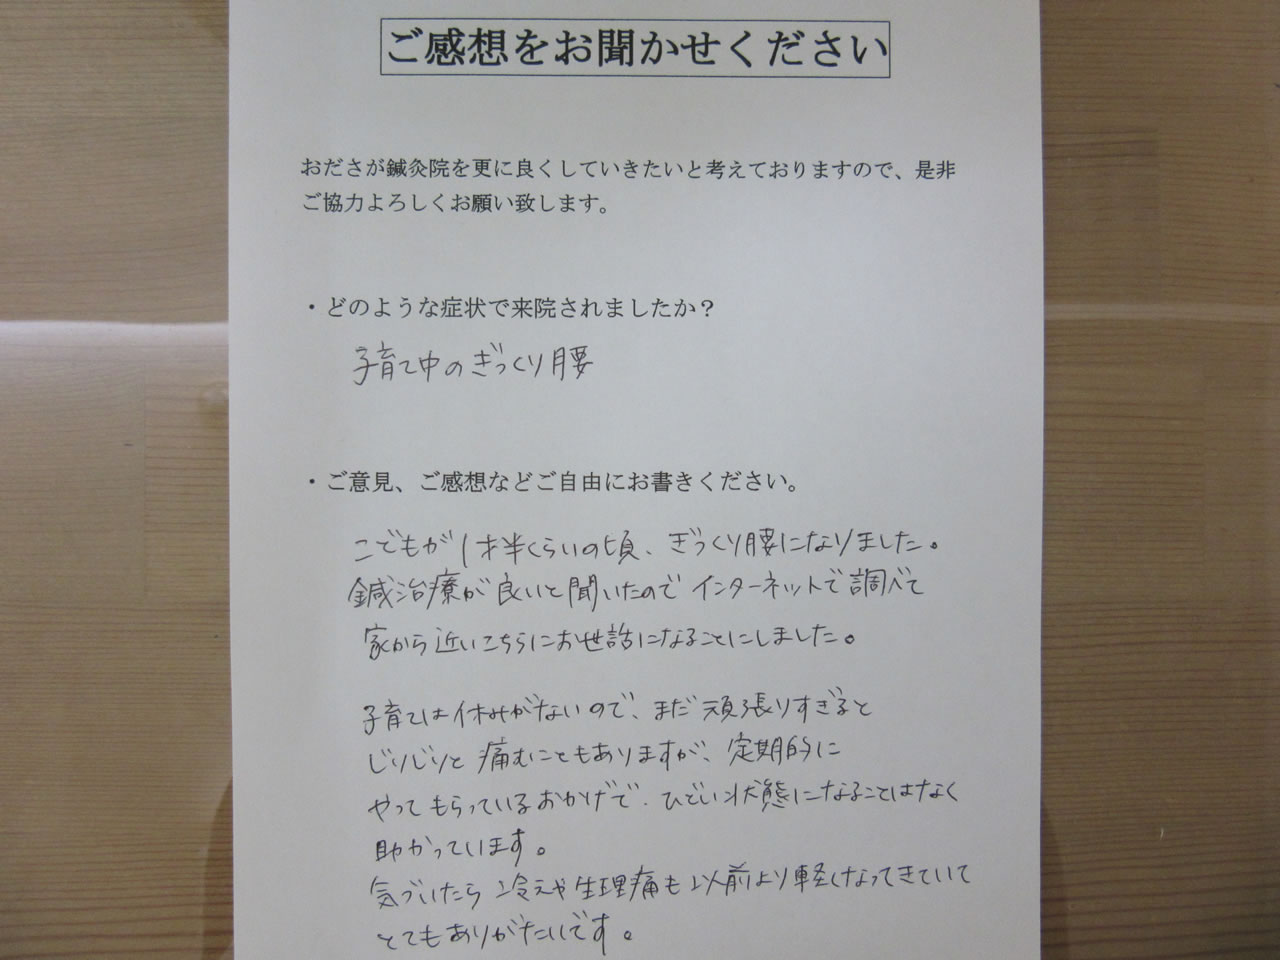 ご感想をお聞かせください
おださが鍼灸院を更に良くしていきたいと考えておりますので、是非
ご協力よろしくお願い致します。
・どのような症状で来院されましたか？
子育て中のぎっくり腰
・ご意見、ご感想などご自由にお書きください。
こどもが1才半くらいの頃、ぎっくり腰になりました。
鍼治療が良いと聞いたのでインターネットで調べて
家から近いこちらにお世話になることにしました。
子育ては休みがないので、まだ頑張りすぎると
じりじりと痛むこともありますが、定期的に
やってもらっているおかげで、ひどい状態になることはなく
助かっています。
気づいたら冷えや生理痛も以前より軽くなってきていて
とてもありがたいです。